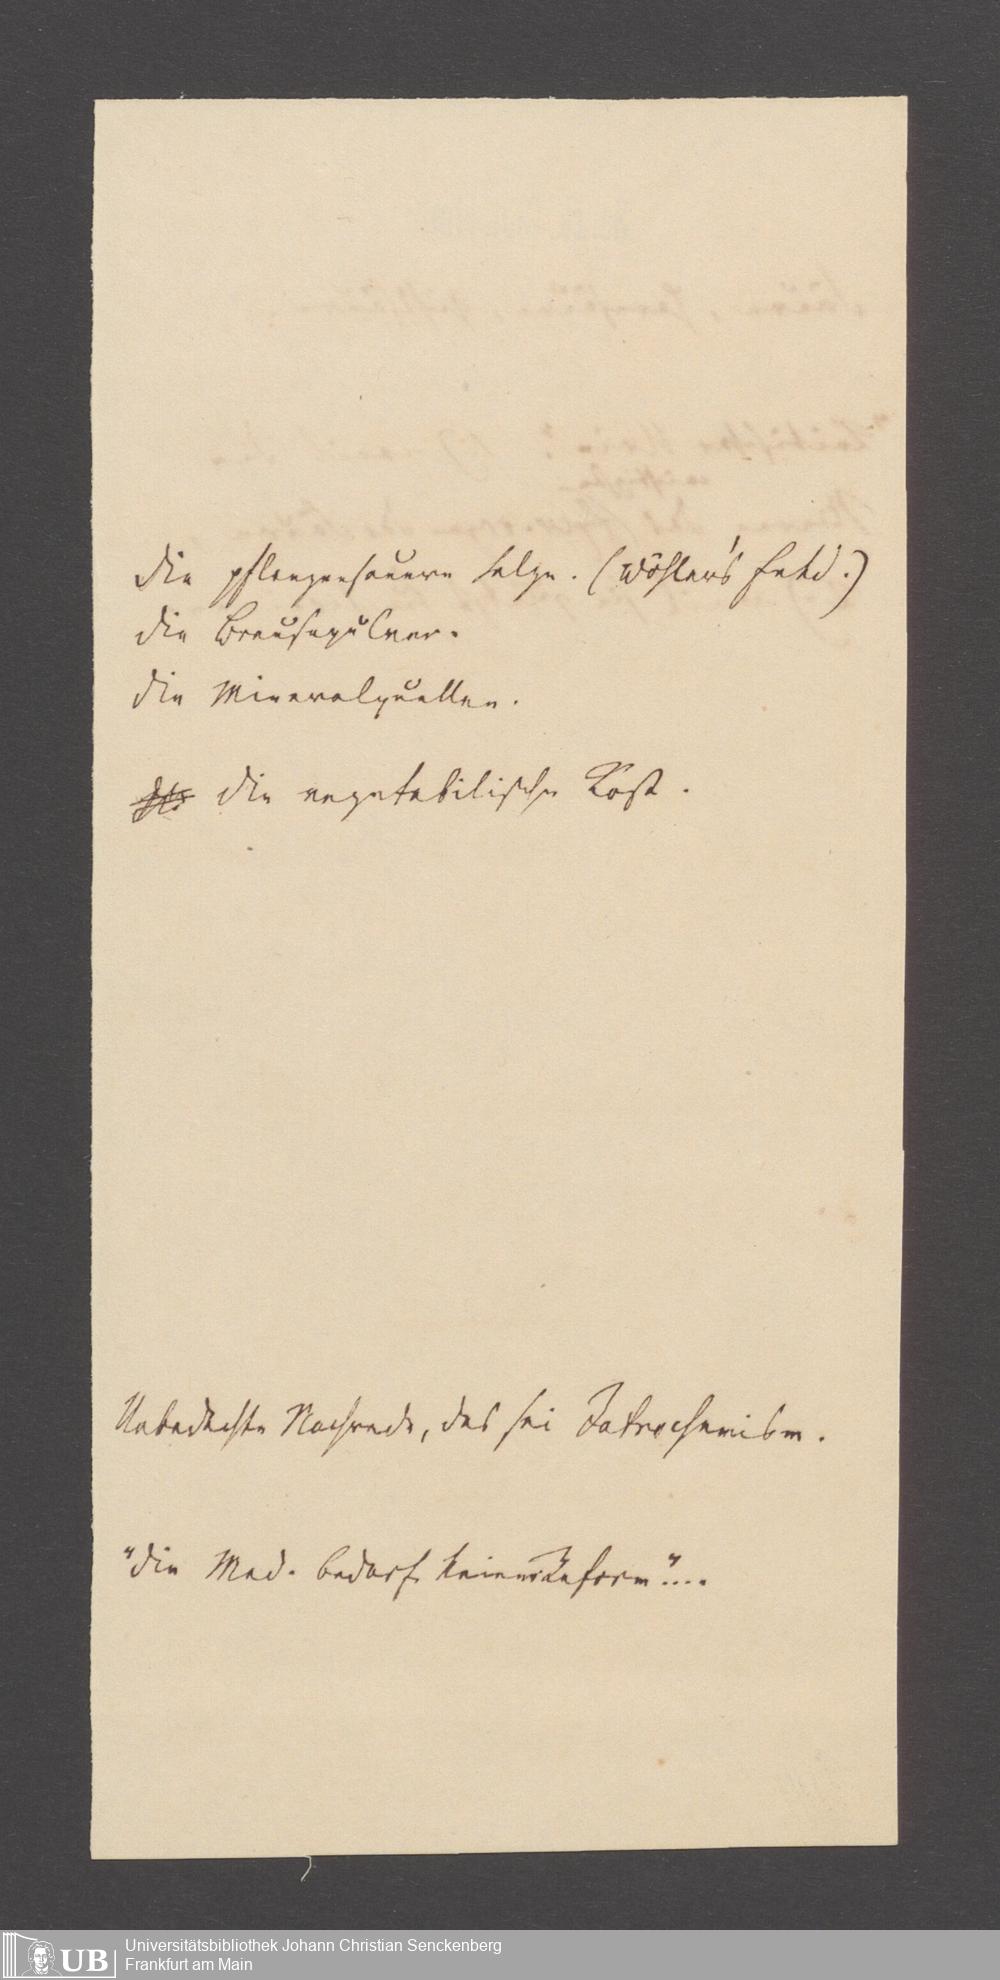 die pflanzensauern Salze. (Wöhler's Entd.)
die Brausepulver.
die Mineralquellen.
die vegetabilische Kost.
Unbedachte Nachrede, das sei Iatrochemism.
"die Med. bedarf keiner Reform"....
UB Universitätsbibliothek Johann Christian Senckenberg
Frankfurt am Main